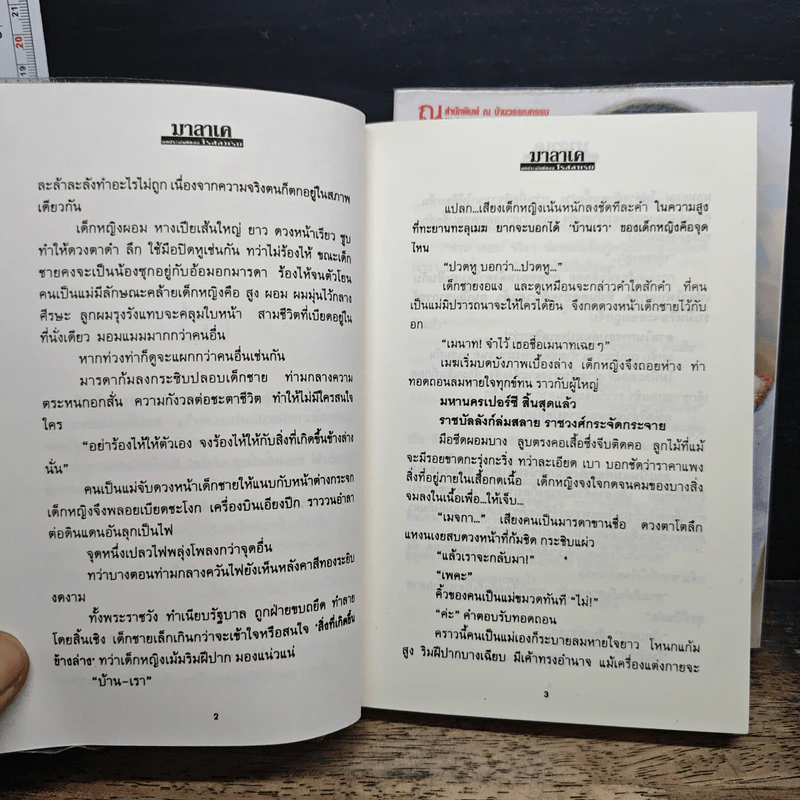 มาลาเค
บทประพันธ์ของ โรสลาเรน
ละล้าละลังทำอะไรไม่ถูก เนื่องจากความจริงตนก็ตกอยู่ในสภาพ
เดียวกัน
เด็กหญิงผอม หางเปียเส้นใหญ่ ยาว ดวงหน้าเรียว ซูบ
ทำให้ดวงตาดำ ลึก ใช้มือปิดหูเช่นกัน ทว่าไม่ร้องไห้ ขณะเด็ก
ชายคงจะเป็นน้องซุกอยู่กับอ้อมอกมารดา ร้องไห้จนตัวโยน
คนเป็นแม่มีลักษณะคล้ายเด็กหญิงคือ สูง ผอม ผมมุ่นไว้กลาง
ศีรษะ ลูกผมรุงรังแทบจะคลุมใบหน้า สามชีวิตที่เบียดอยู่ใน
ที่นั่งเดียว มอมแมมมากกว่าคนอื่น
หากท่วงท่าก็ดูจะแผกกว่าคนอื่นเช่นกัน
มารดาก้มลงกระซิบปลอบเด็กชาย ท่ามกลางความ
ตระหนกอกสั่น ความกังวลต่อชะตาชีวิต ทำให้ไม่มีใครสนใจ
ใคร
“อย่าร้องไห้ให้ตัวเอง จงร้องไห้ให้กับสิ่งที่เกิดขึ้นข้างล่าง
นั่น”
คนเป็นแม่จับดวงหน้าเด็กชายให้แนบกับหน้าต่างกระจก
เด็กหญิงจึงพลอยเบียดชะโงก เครื่องบินเอียงปีก ราวอนอำลา
ต่อดินแดนอันลุกเป็นไฟ
จุดหนึ่งเปลวไฟพลุ่งโพลงกว่าจุดอื่น
ทว่าบางตอนท่ามกลางควันไฟยังเห็นหลังคาสีทองระยิบ
งดงาม
ทั้งพระราชวัง ทำเนียบรัฐบาล ถูกฝ่ายขบถยึด ทำลาย
โดยสิ้นเชิง เด็กชายเล็กเกินกว่าจะเข้าใจหรือสนใจ ‘สิ่งที่เกิดขึ้น
ข้างล่าง’ ทว่าเด็กหญิงเม้มริมฝีปาก มองแน่วแน่
“บ้าน–เรา”
2
ณ สำนักพิมพ์ ณ บ้านวรรณกรรม
มาลาเค
บทประพันธ์ของ โรสลาเรน
แปลก...เสียงเด็กหญิงเน้นหนักลงชัดทีละคำ ในความสูง
ที่ทะยานทะลุเมฆ ยากจะบอกได้ ‘บ้านเรา’ ของเด็กหญิงคือจุด
ไหน
“ปวดหู บอกว่า...ปวดหู...”
เด็กชายงอแง และดูเหมือนจะกล่าวคำใดสักคำ ที่คน
เป็นแม่มิปรารถนาจะให้ใครได้ยิน จึงกดดวงหน้าเด็กชายไว้กับ
อก
“เมนาท! จำไว้ เธอชื่อเมนาทเฉยๆ”
เมฆเริ่มบดบังภาพเบื้องล่าง เด็กหญิงจึงถอยห่าง ท่า
ทอดถอนลมหายใจทุกข์ทน ราวกับผู้ใหญ่
มหานครเปอร์ซี สิ้นสุดแล้ว
ราชบัลลังก์ล่มสลาย ราชวงศ์กระจัดกระจาย
มือซีดผอมบาง ลูบตรงคอเสื้อซึ่งจีบติดคอ ลูกไม้ที่แม้
จะมีรอยขาดกะรุ่งกะริ่ง ทว่าละเอียด เบา บอกชัดว่าราคาแพง
สิ่งที่อยู่ภายในเสื้อกดเนื้อ เด็กหญิงจงใจกดจนคมของบางสิ่ง
จมลงในเนื้อเพื่อ...ให้เจ็บ...
“เมจกา...” เสียงคนเป็นมารดาขานชื่อ ดวงตาโตลึก
แหงนเงยสบดวงหน้าที่ก้มชิด กระซิบแผ่ว
“แล้วเราจะกลับมา!”
“เพคะ”
คิ้วของคนเป็นแม่ขมวดทันที “ไม่!”
“ค่ะ” คำตอบรับทอดถอน
คราวนี้คนเป็นแม่เองก็ระบายลมหายใจยาว โหนกแก้ม
สูง ริมฝีปากบางเฉียบ มีเค้าทรงอำนาจ แม้เครื่องแต่งกายจะ
3